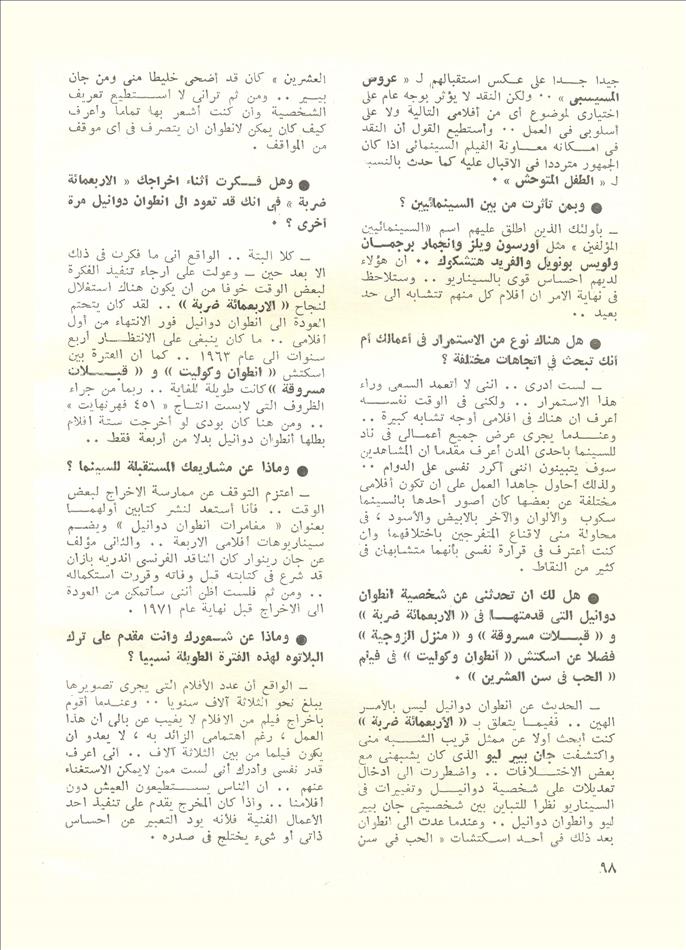 جيدا جدا على عكس استقبالهم لـ « عروس
المسيسبى » ٠٠ ولكن النقد لا يؤثر بوجه عام على
اختيارى لموضوع أى من أفلامى التالية ولا على
أسلوبى فى العمل ٠٠ وأستطيع القول أن النقد
فى امكانه معاونة الفيلم السينمائى اذا كان
الجمهور مترددا فى الاقبال عليه كما حدث بالنسبة
لـ « الطفل المتوحش » ٠
● وبمن تأثرت من بين السينمائيين ؟
ـ بأولئك الذين اطلق عليهم اسم «السينمائيين
المؤلفين » مثل أورسون ويلز وانجمار برجمان
ولويس بونويل والفريد هتشكوك ٠٠ ان هؤلاء
لديهم احساس قوى بالسيناريو ٠٠ وستلاحظ
فى نهاية الامر ان أفلام كل منهم تتشابه الى حد
بعيد ٠٠
● هل هناك نوع من الاستمرار فى أعمالك أم
أنك تبحث فى اتجاهات مختلفة ؟
ـ لست ادرى ٠٠ اننى لا أتعمد السعى وراء
هذا الاستمرار ٠٠ ولكنى فى الوقت نفسه
أعرف ان هناك فى افلامى أوجه تشابه كبيرة ٠٠
وعندما يجرى عرض جميع أعمالى فى ناد
للسينما باحدى المدن أعرف مقدما ان المشاهدين
سوف يتبينون اننى أكرر نفسى على الدوام ٠٠
ولذلك أحاول جاهدا العمل على ان تكون أفلامى
مختلفة عن بعضها كان أصور أحدها بالسينما
سكوب والألوان والآخر بالأبيض والأسود ، فى
محاولة منى لاقناع المتفرجين باختلافهما وان
كنت أعترف فى قرارة نفسى بأنهما متشابهان فى
كثير من النقاط ٠
● هل لك ان تحدثنى عن شخصية انطوان
دوانيل التى قدمتها فى « الاربعمائة ضربة »
و « قبلات مسروقة » و « منزل الزوجية »
فضلا عن اسكتش « أنطوان وكوليت » فى فيلم
« الحب فى سن العشرين » ٠
ـ الحديث عن انطوان دوانيل ليس بالأمر
الهين ٠٠ ففيما يتعلق بـ « الأربعمائة ضربة »
كنت أبحث أولا عن ممثل قريب الشبه منى
واكتشفت جان بيير ليو الذى كان يشبهنى مع
بعض الاختلافات ٠٠ واضطررت الى ادخال
تعديلات على شخصية دوانيل وتغييرات فى
السيناريو نظرا للتباين بين شخصيتى جان بيير
ليو وانطوان دوانيل ٠٠ وعندما عدت الى انطوان
بعد ذلك فى أحد اسكتشات « الحب فى سن
العشرين » كان قد أضحى خليطا منى ومن جان
بيير ٠٠ ومن ثم ترانى لا استطيع تعريف
الشخصية وان كنت أشعر بها تماما وأعرف
كيف كان يمكن لانطوان ان يتصرف فى اى موقف
من المواقف ٠
● وهل فكرت أثناء اخراجك « الاربعمائة
ضربة » فى انك قد تعود الى انطوان دوانيل مرة
أخرى ؟ ٠
ـ كلا البتة ٠٠ الواقع انى ما فكرت فى ذلك
الا بعد حين ـ وعولت على ارجاء تنفيذ الفكرة
لبعض الوقت خوفا من ان يكون هناك استغلال
لنجاح « الاربعمائة ضربة » ٠٠ لقد كان يتحتم
العودة الى انطوان دوانيل فور الانتهاء من أول
افلامى ٠٠ ما كان ينبغى على الانتظار أربع
سنوات الى عام ١٩٦٣ ٠٠ كما ان الفترة بين
اسكتش « انطوان وكوليت » و « قبلات
مسروقة » كانت طويلة للغاية ٠٠ ربما من جراء
الظروف التى لابست انتاج « ٤٥١ فهرنهايت »
٠٠ ومن هنا كان بودى لو أخرجت ستة أفلام
بطلها أنطوان دوانيل بدلا من أربعة فقط ٠٠
● وماذا عن مشاريعك المستقبلة للسينما ؟
ـ اعتزم التوقف عن ممارسة الاخراج لبعض
الوقت ٠٠ فأنا أستعد لنشر كتابين أولهما
بعنوان « مغامرات انطوان دوانيل » ويضم
سيناريوهات أفلامى الاربعة ٠٠ والثانى مؤلف
عن جان رينوار كان الناقد الفرنسى اندريه بازان
قد شرع فى كتابته قبل وفاته وقررت استكماله
٠٠ ومن ثم فلست اظن أننى سأتمكن من العودة
الى الاخراج قبل نهاية عام ١٩٧١ ٠
● وماذا عن شعورك وانت مقدم على ترك
البلاتوه لهذه الفترة الطويلة نسبيا ؟
ـ الواقع أن عدد الأفلام التى يجرى تصويرها
يبلغ نحو الثلاثة آلاف سنويا ٠٠ وعندما أقوم
باخراج فيلم من الافلام لا يغيب عن بالى ان هذا
العمل ، رغم اهتمامى الزائد به ، لا يعدو ان
يكون فيلما من بين الثلاثة آلاف ٠٠ انى اعرف
قدر نفسى وأدرك أنى لست ممن لايمكن الاستغناء
عنهم ٠٠ ان الناس يستطيعون العيش دون
أفلامنا ٠٠ واذا كان المخرج يقدم على تنفيذ احد
الأعمال الفنية فلأنه يود التعبير عن احساس
ذاتى أو شىء يختلج فى صدره ٠
٩٨